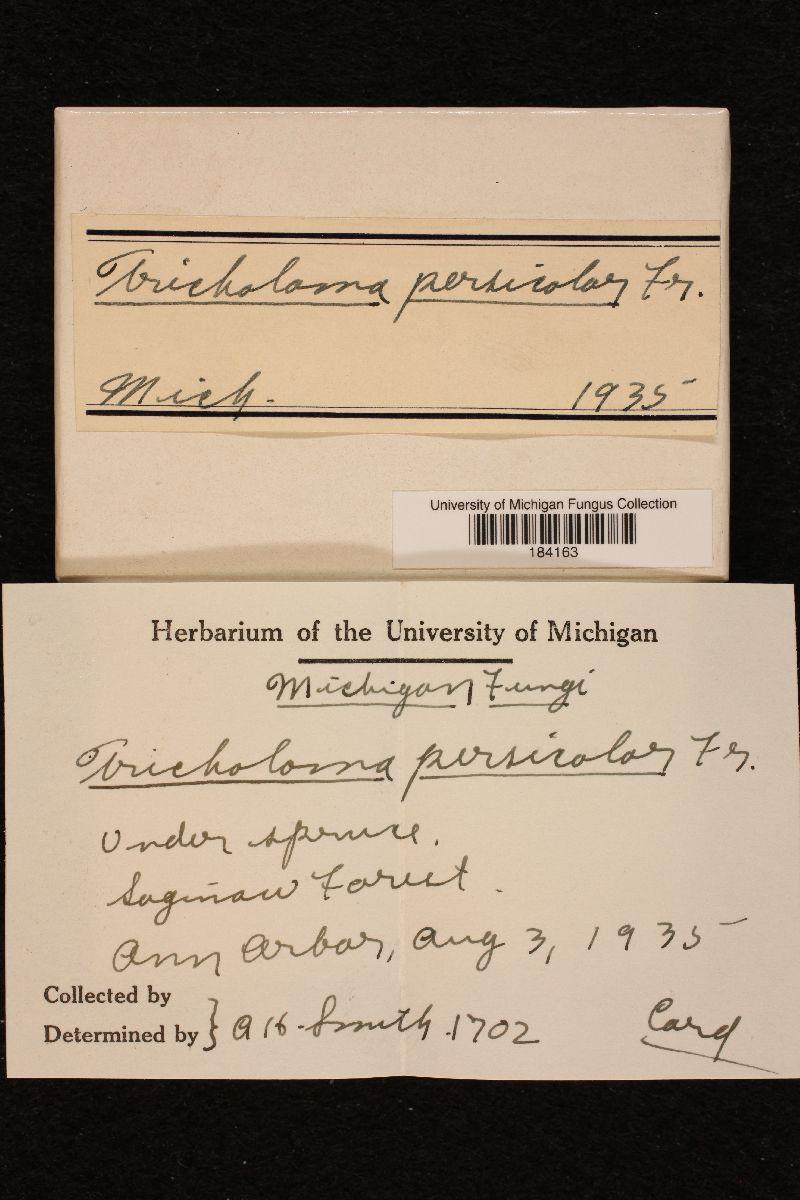 Tricholoma persicolor Fr.
Mich. 1935
University of Michigan Fungus Collection
184163
Herbarium of the University of Michigan
Michigan Fungi
Tricholoma persicolor Fr.
Under spruce.
Saginaw Forest.
Ann Arbor, Aug 3, 1935
Collected by
Determined by } A H. Smith. 1702 Card